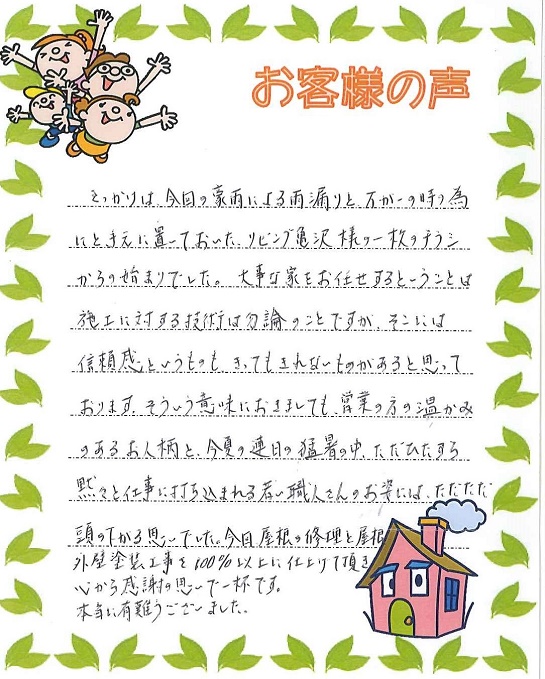 お客様の声
きっかけは、今回の豪雨による雨漏りと、万が一の時の為
にと手元に置っておいた、リビング亀沢様の一枚のチラシ
からの始まりでした。大事な家をお任せするということは
施工に対する技術は勿論のことですが、そこには
信頼感というものも、きってもきれないものがあると思って
おります。そういう意味におきましても、営業の方の温かみ
のあるお人柄と、今夏の連日の猛暑の中、ただひたすら
黙々と仕事に打ち込まれる若い職人さんのお姿には、ただただ
頭の下がる思いでした。今回屋根の修理と屋根
外壁塗装工事を100%以上に仕上げて頂き
心から感謝の思いで一杯です。
本当に有難うございました。